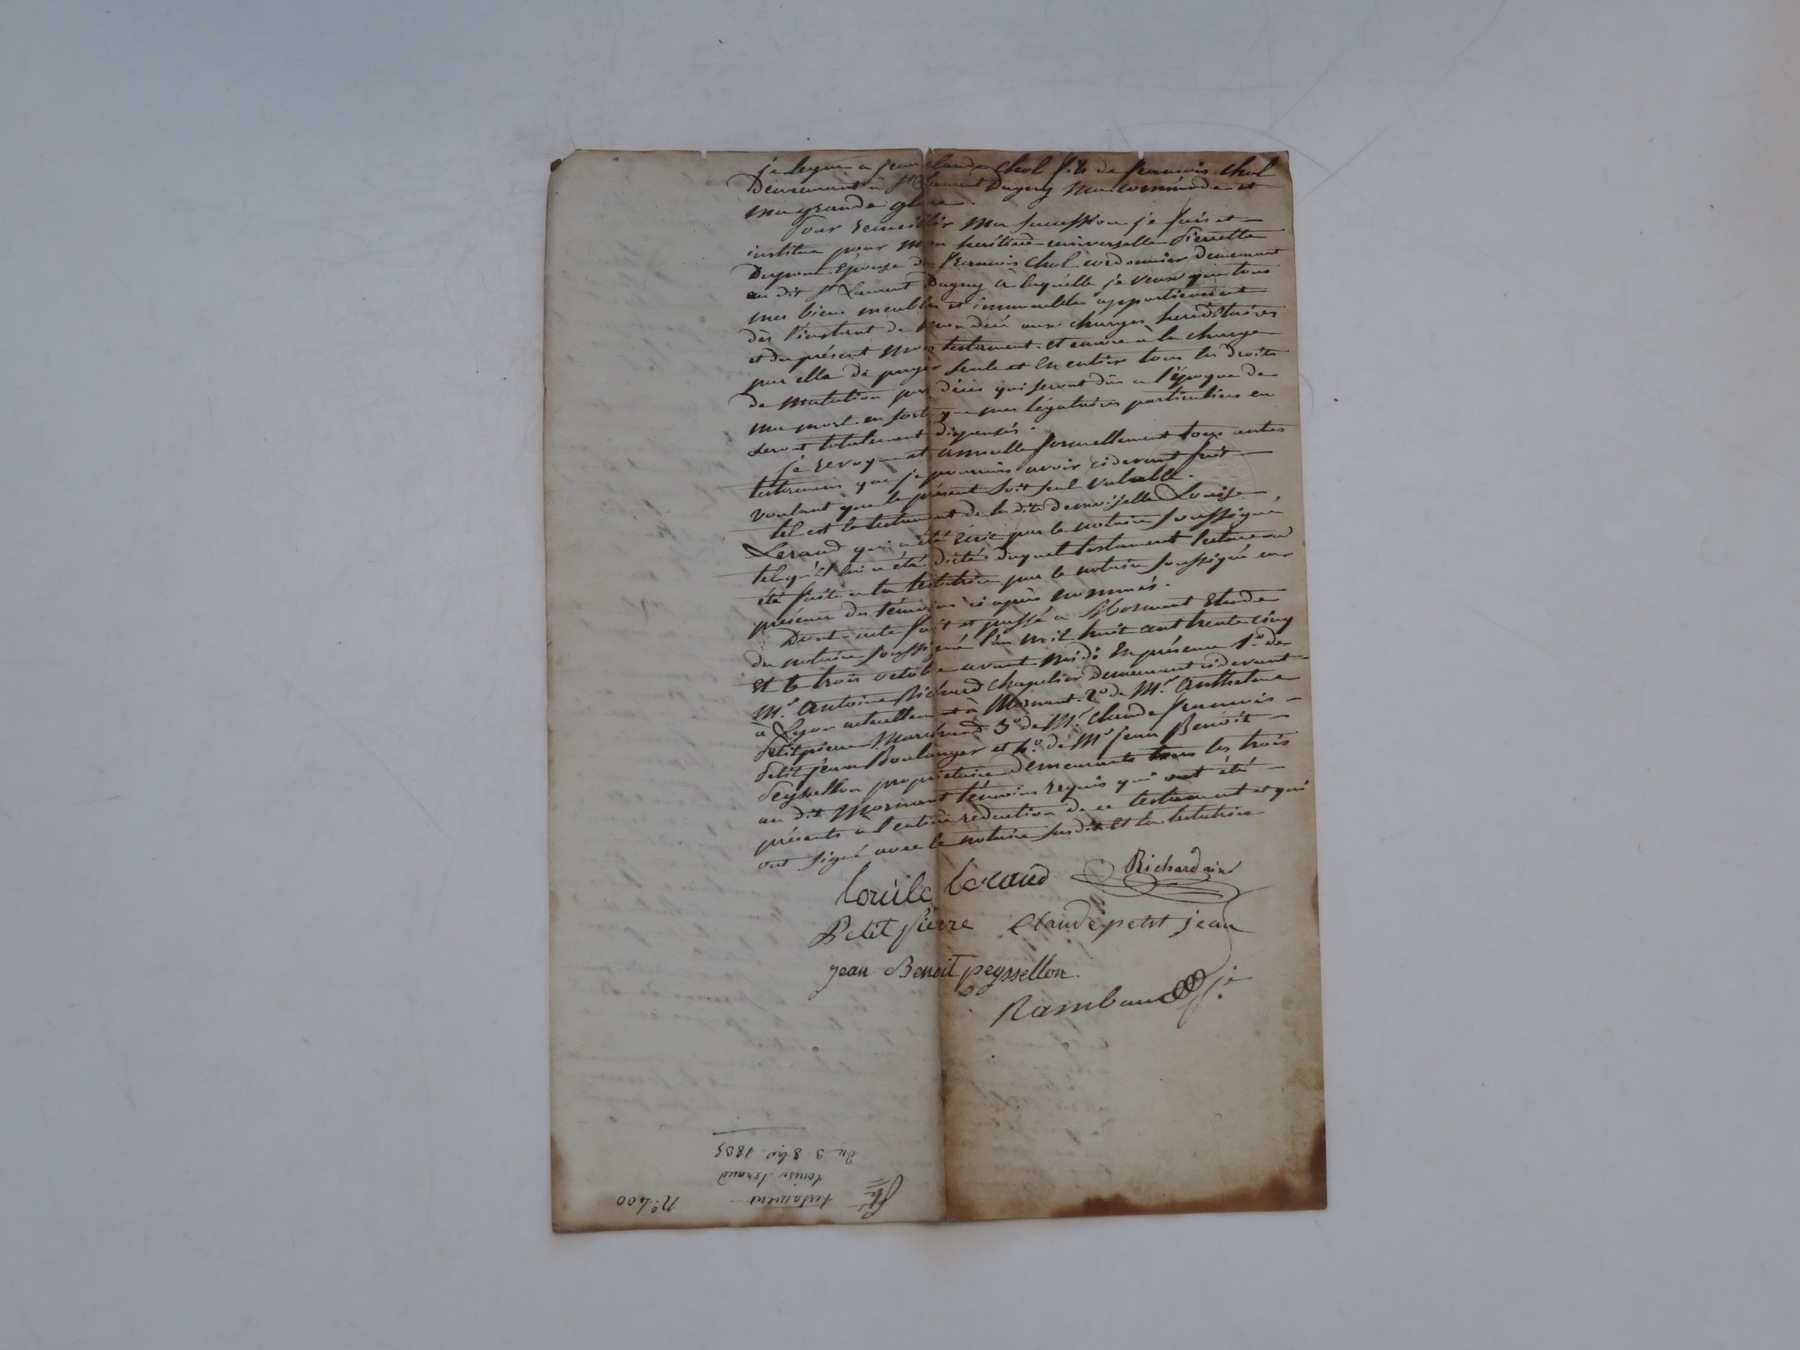 je legue a jean claude Chol fils de francois Chol
Demeurant à St Laurent Dagny Ma commode et
ma grande glace.
Pour recueillir ma succession je fais et
institue pour mon heritière universelle Pierrette
Dupont Epouse de francois Chol cordonnier demeurant
au dit St Laurent Dagny à laquelle je veux que tous
mes biens meubles et immeubles appartiennent
dès l'instant de mon décès aux charges héréditaires
et du présent mon testament. Et encore a la charge
par elle de payer seule et En entier tous les droits
de mutation par décès qui seront dus a l'époque de
ma mort. en sorte que mes légataires particuliers en
seront totalement dispensés.
je revoque et annulle formellement tous autres
testaments que je pourrais avoir cidevant fait
voulant que le présent soit seul valable.
tel est le testament de la dite demoiselle Louise
Leraud qui a été Ecrit par le notaire soussigné
tel qu'il lui a été dicté duquel testament lecture a
été faite a la testatrice par le notaire soussigné en
présence des témoins ci après nommés.
Dont acte fait et passé a Mornant Etude
du notaire soussigné l'an mil huit cent trente cinq
Et le trois octobre avant midi En présence 1o. de
Mr. Antoine Richard chapelier demeurant cidevant
a Lyon actuellement à Mornant. 2o de Mr. Anthelme
Petitpierre Marchand 3o de Mr. Claude francois
Petitjean Boulanger et 4o. de Mr Jean Benoit
Peyssellon propriétaire demeurants tous les trois
au dit Mornant témoins requis qui ont été
présents a l'entière rédaction de ce testament et qui
ont signé avec le notaire susdit Et la testatrice
Louise Leraud Richard ainé
Petit pierre Claude petit jean
jean Benoit peyssellon
Rambaud
No. 400
testament
Louise Leraud
Du 3 8bre 1835